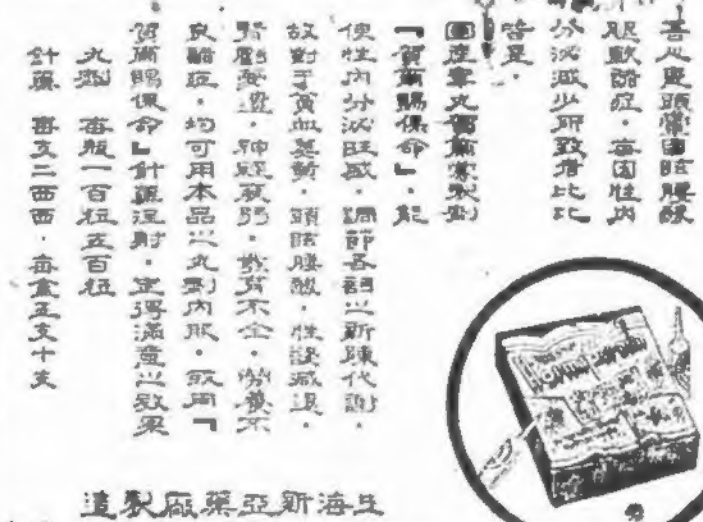 頭暈目眩腰酸
腿軟諸症。每因性內
分泌減少所致者比比
皆是。
國產睪丸賀爾蒙製劑
『賀爾賜保命』。能
使性內分泌旺盛。調節各之新陳代謝。
故對于貧血萎黃。頭眩腰酸。性慾減退。
腎虧夢遺。神經衰弱。發育不全。營養不
良諸症。均可用本品之丸劑內服。或用『
賀爾賜保命』針藥注射。定得滿意之效果
丸劑 每瓶一百粒五百粒
針藥 每支二西西。每盒五支十支
上海新亞藥廠製造